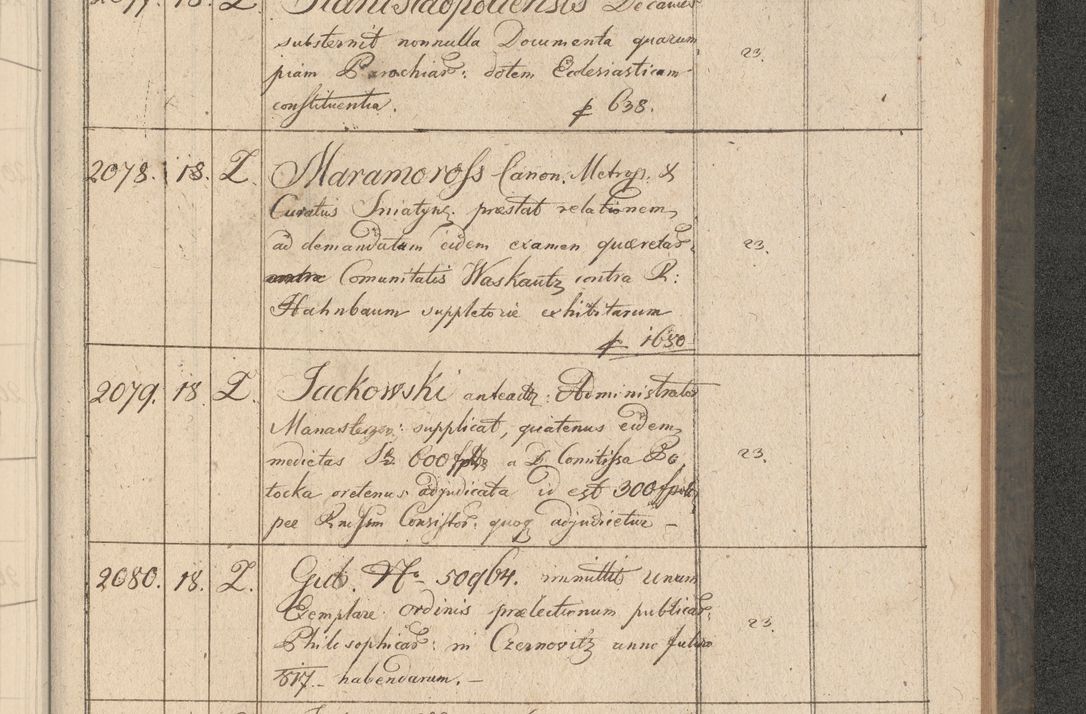 2077. 18. L. Stanislaopoliensis Decanus
substernit nonnulla Documenta quarum
piam Parochiar: dotem Ecclesiasticam 23.
constituentia. p 638.
2078. 18. L. Maramoross Canon. Metrop. &
Curatus Sniatyn. præstat relationem
ad demandatum eidem examen quæretar. 23.
Comunitatis Waskautz contra R:
Hahnbaum suppletorie exhibitarum
p 1630
2079. 18. L. Jackowski anteact. Administrator
Manasterzys: supplicat, quatenus eidem
medietas 600 a D. Comitissa Po 23.
tocka oretenus adjudicata id est 300
per Rndssim Consistor. quoq adjudicetur –
2080. 18. L. Gub. No 50964. immittit unum
Exemplare ordinis prælectionum publicar.
Philosophicar: in Czernovitz anno futuro 23.
817 habendarum. –